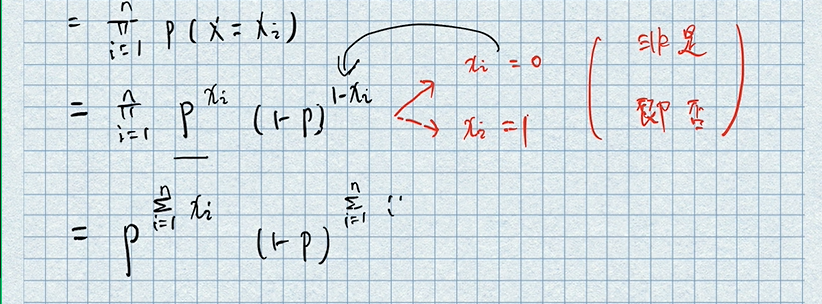 = ∏_{i=1}^{n} P(X = x_i)
= ∏_{i=1}^{n} p^{x_i} (1-p)^{1-x_i} x_i = 0 x_i = 1 (非是即否)
= p^{∑_{i=1}^{n} x_i} (1-p)^{∑_{i=1}^{n}}